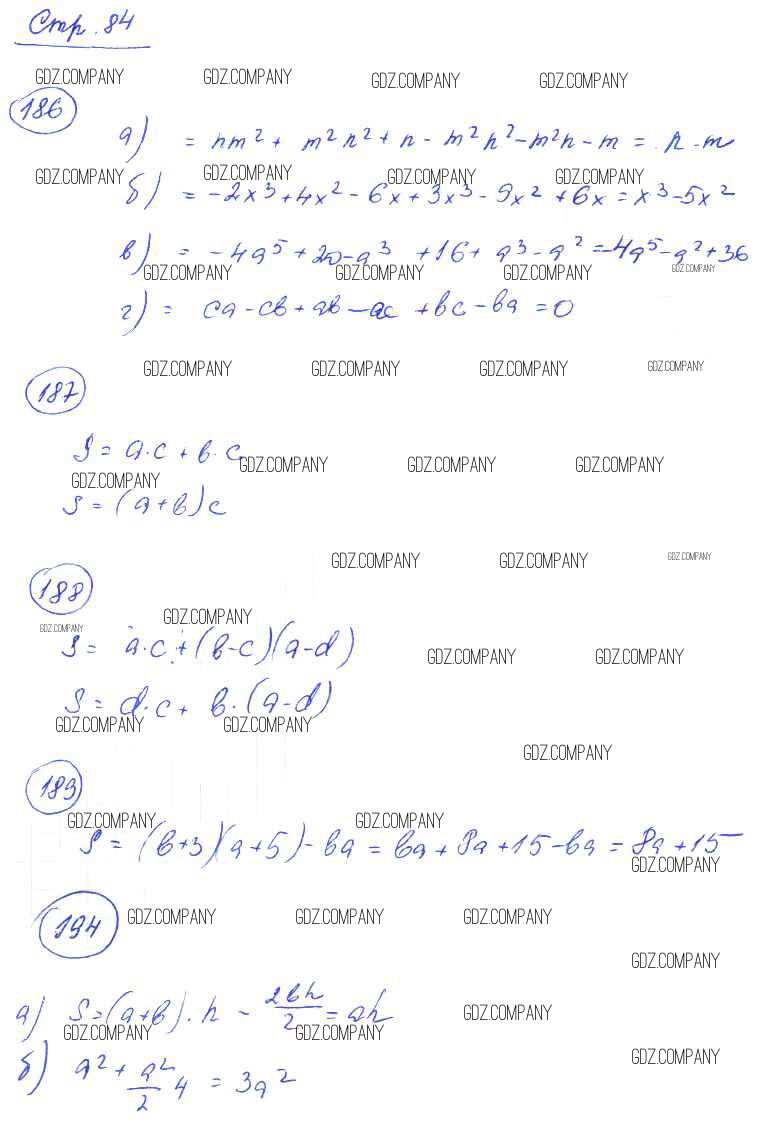 Стр. 84
GDZ.COMPANY GDZ.COMPANY GDZ.COMPANY GDZ.COMPANY
186
а) = nm² + m²n² + n - m²n² - m²n - m = n - m
GDZ.COMPANY GDZ.COMPANY GDZ.COMPANY GDZ.COMPANY
б) = -2x³ + 4x² - 6x + 3x³ - 9x² + 6x = x³ - 5x²
в) = -4a⁵ + 20 - a³ + 16 + a³ - a² = -4a⁵ - a² + 36
GDZ.COMPANY GDZ.COMPANY GDZ.COMPANY GDZ.COMPANY
г) = ca - cb + ab - ac + bc - ba = 0
GDZ.COMPANY GDZ.COMPANY GDZ.COMPANY GDZ.COMPANY
187
S = a·c + b·c
GDZ.COMPANY GDZ.COMPANY GDZ.COMPANY
GDZ.COMPANY
S = (a+b)c
GDZ.COMPANY GDZ.COMPANY GDZ.COMPANY
188
GDZ.COMPANY
GDZ.COMPANY
S = a·c + (b-c)(a-d)
GDZ.COMPANY GDZ.COMPANY
S = d·c + b·(a-d)
GDZ.COMPANY GDZ.COMPANY
GDZ.COMPANY
189
GDZ.COMPANY GDZ.COMPANY
S = (b+3)(a+5) - ba = ba + 8a + 15 - ba = 8a + 15
GDZ.COMPANY
194
GDZ.COMPANY GDZ.COMPANY GDZ.COMPANY
GDZ.COMPANY
а) S = (a+b)·h - 2bh/2 = ah
GDZ.COMPANY
GDZ.COMPANY GDZ.COMPANY
GDZ.COMPANY
б) a² + a²/2 4 = 3a²